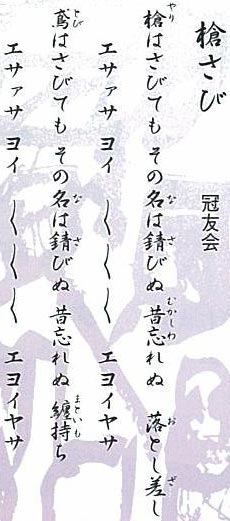 槍さび
冠友会
槍はさびても その名は錆びぬ 昔忘れぬ 落とし差し
エサァサ ヨイ 〳〵 〳〵 〳〵 エヨイヤサ
鳶はさびても その名は錆びぬ 昔忘れぬ 纏持ち
エサァサ ヨイ 〳〵 〳〵 〳〵 エヨイヤサ